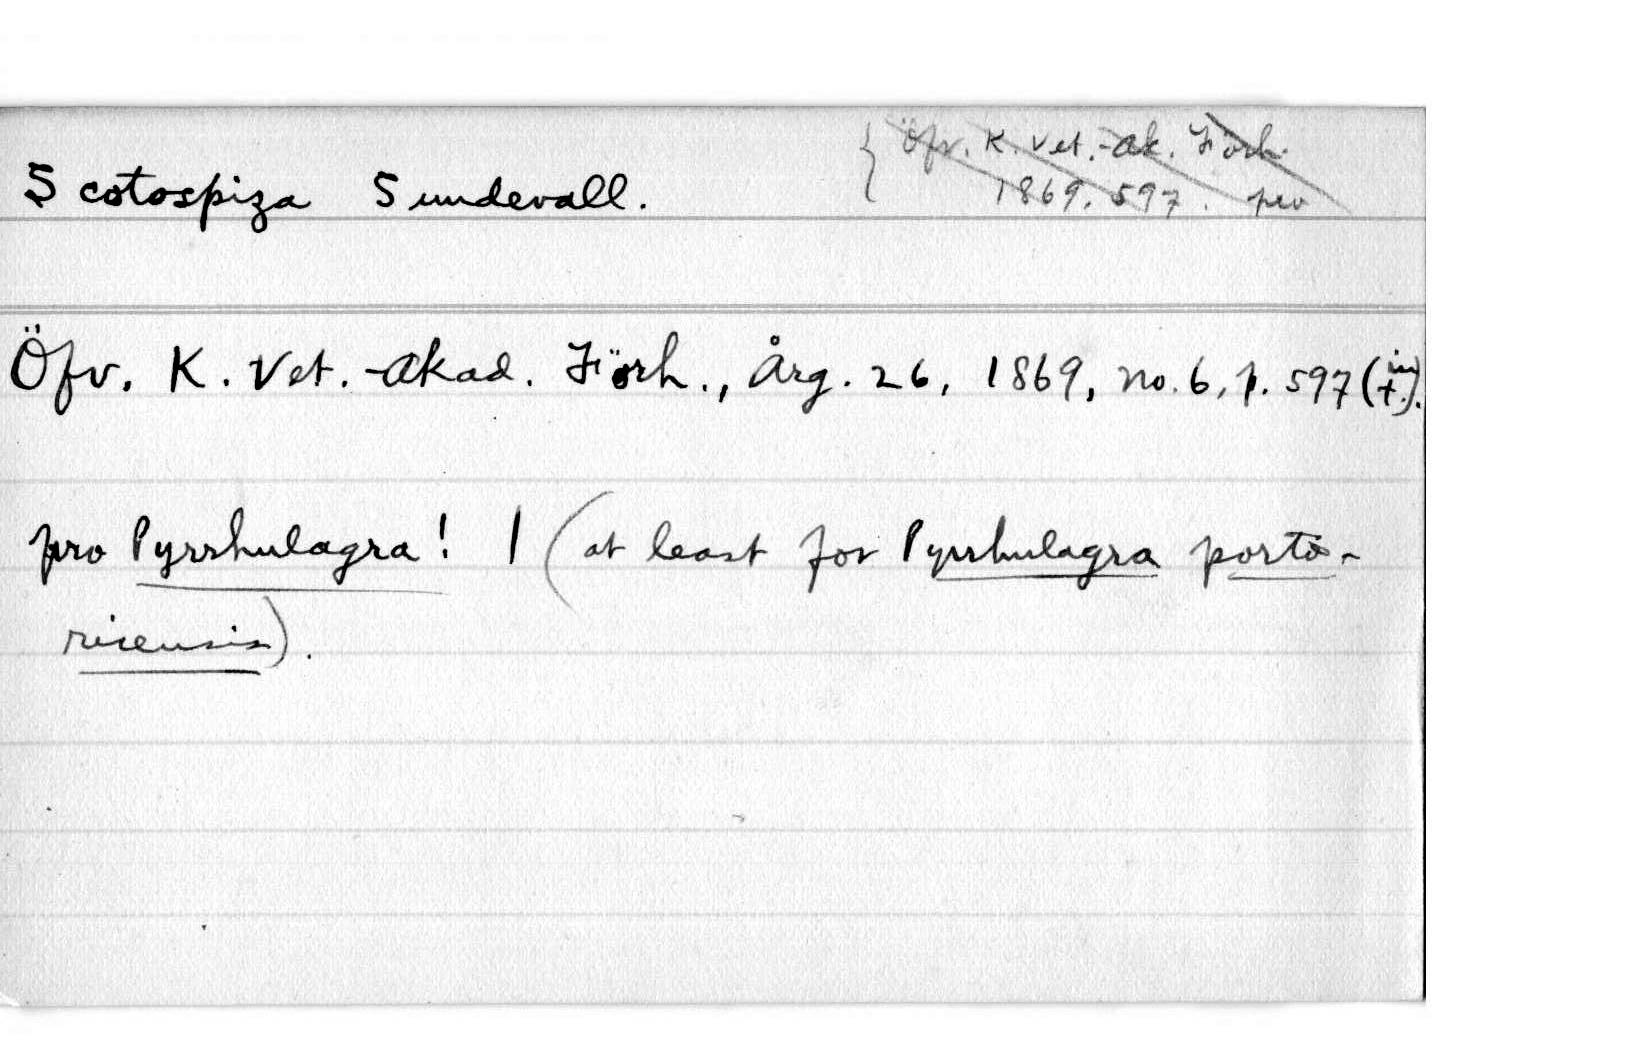 Scotospiza Sundevall.
{ Öfv. K. Vet.-Ak. Förh.
1869, 597. pro
Öfv. K. Vet.-Akad. Förh., Årg. 26, 1869, no. 6, p. 597 (in t.).
pro Pyrrhulagra! | (at least for Pyrrhulagra porto-
ricensis).